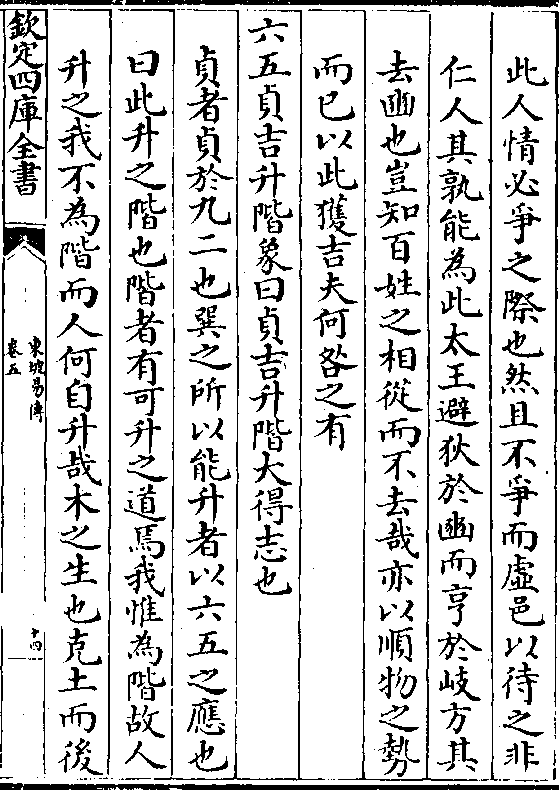 此人情必爭之際也然且不爭而虛邑以待之非
仁人其孰能為此太王避狄於豳而亨於岐方其
去豳也豈知百姓之相從而不去哉亦以順物之勢
而已以此獲吉夫何咎之有
六五貞吉升階象曰貞吉升階大得志也
貞者貞於九二也巽之所以能升者以六五之應也
曰此升之階也階者有可升之道焉我惟為階故人
升之我不為階而人何自升哉木之生也克土而後
欽定四庫全書
東坡易傳
卷五
十四